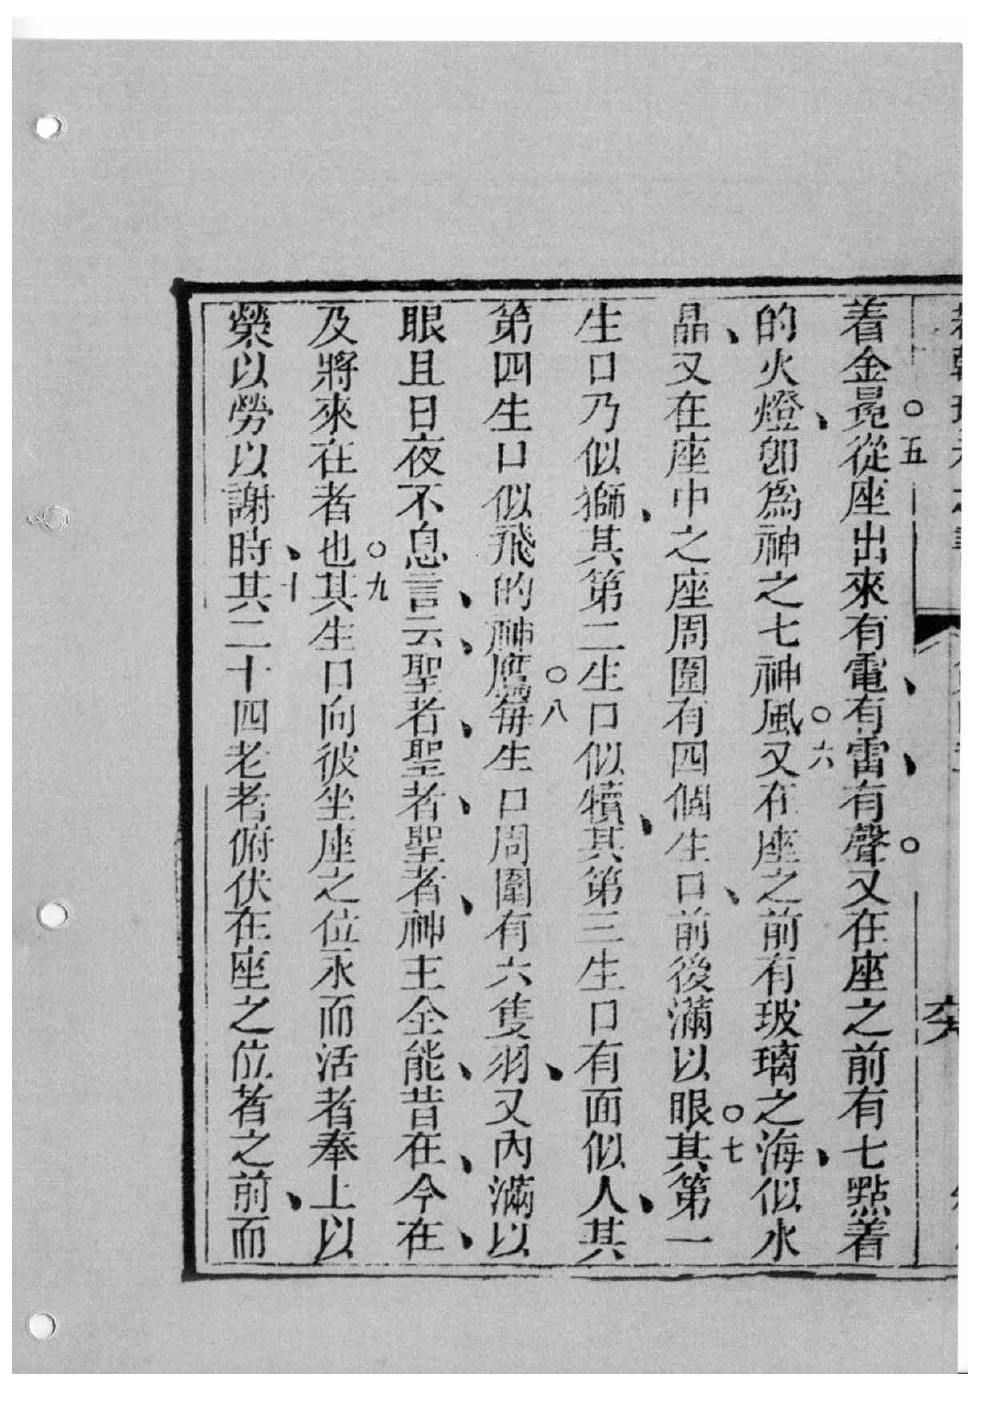 着金冕○五從座出來有電、有雷、有聲○又在座之前有七㸃着
的火燈、卽爲神之七神風○六又在座之前有玻璃之海、似水
晶、又在座中之座周圍有四個生口、前後滿以眼○七其第一
生口乃似獅、其第二生口似犢、其第三生口有面似人、其
第四生口似飛的神鷹○八每生口周圍有六隻羽、又內滿以
眼且日夜不息言、云、聖者、聖者、聖者、神主全能、昔在、今在、
及將來在者也○九其生口向彼坐座之位永而活者奉上以
榮以勞以謝時、十其二十四老者俯伏在座之位者之前、而